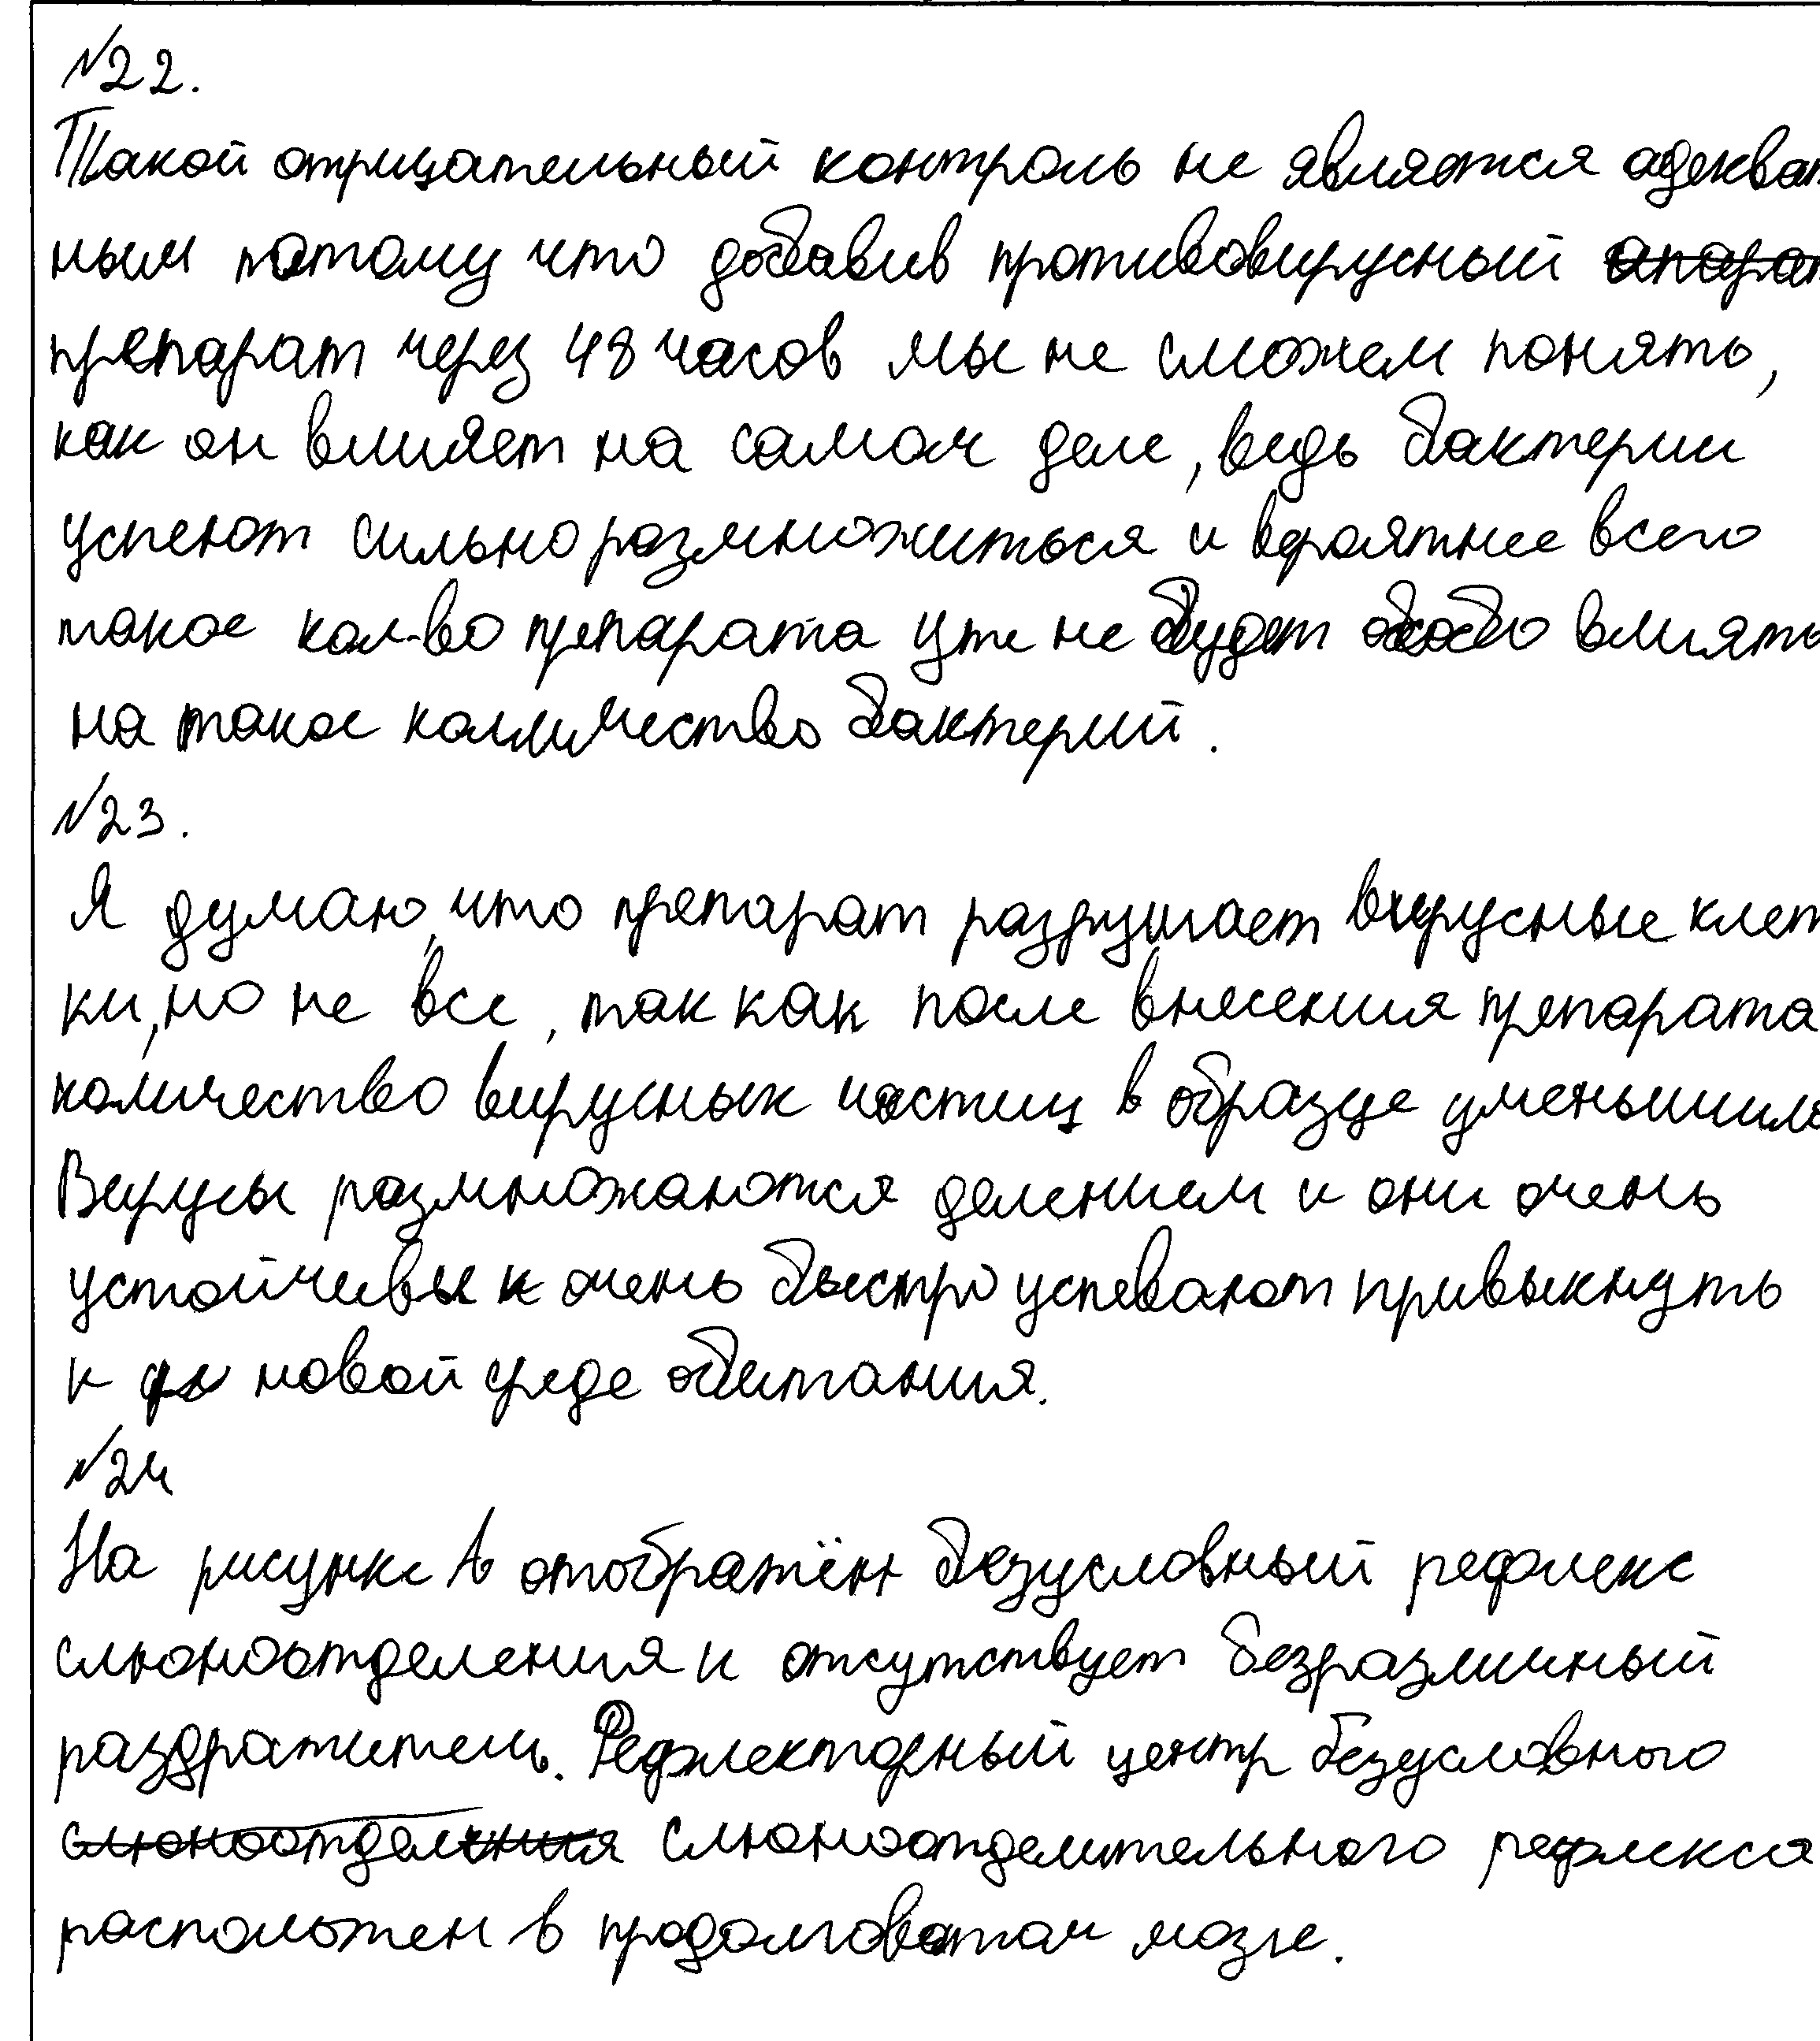 №22.
Такой отрицательный контроль не является адекват
ным потому что добавив противовирусный
препарат через 48 часов мы не сможем понять,
как он влияет на самом деле, ведь бактерии
успеют сильно размножиться и вероятнее всего
такое кол-во препарата уже не будет особо влиять
на такое колличество бактерий.
№23.
Я думаю, что препарат разрушает вирусные клет
ки, но не все, так как после внесения препарата
количество вирусных частиц в образце уменьшило
Вирусы размножаются делением и они очень
устойчивы и очень быстро успевают привыкнуть
к новой среде обитания.
№24
На рисунке А отображён безусловный рефлекс
слюноотделения и отсутствует безразличный
раздражитель. Рефлекторный центр безусловного
слюноотделения слюноотделительного рефлекса
расположен в продолговатом мозге.